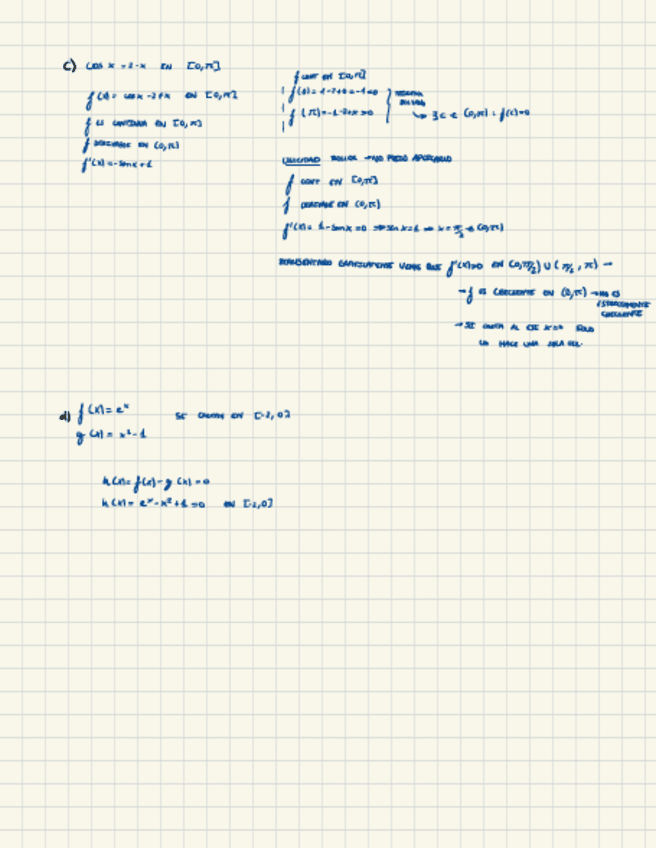 c) cos x = 2-x EN [0,π]
f(x) = cos x -2+x EN [0,π]
f ES CONTINUA EN [0,π]
f DERIVABLE EN (0,π)
f'(x) = -sen x + 1
f CONT EN [0,π]
f(0) = 1-2+0 = -1 <0
f(π) = -1-2+π >0
TEOREMA
BOLZANO
↳ ∃ c ∈ (0,π) : f(c)=0
UNICIDAD ROLLE → NO PUEDO APLICARLO
f CONT EN [0,π]
f DERIVABLE EN (0,π)
f'(x) = 1-sen x = 0 ⇒ sen x = 1 ⇒ x = π/2 ∈ (0,π)
GRAFICAMENTE VEMOS QUE f'(x)>0 EN (0,π/2) ∪ (π/2, π) →
→ f ES CRECIENTE EN (0,π) → NO ES
ESTRICTAMENTE
CRECIENTE
→ SI CORTA AL EJE X=0 SOLO
LO HACE UNA SOLA VEZ.
d) f(x) = eˣ SE CORTAN EN [-2, 0]
g(x) = x²-1
h(x) = f(x) - g(x) = 0
h(x) = eˣ - x² + 1 = 0 EN [-2,0]